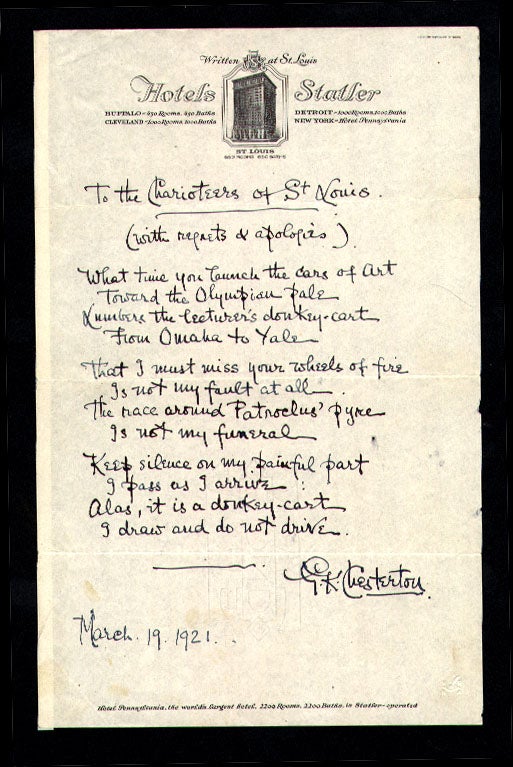 Written at St. Louis
Hotels Statler
BUFFALO-450 Rooms, 450 Baths
CLEVELAND-1000 Rooms, 1000 Baths
DETROIT-1000 Rooms, 1000 Baths
NEW YORK-Hotel Pennsylvania
ST. LOUIS
650 ROOMS 650 BATHS
To the Charioteers of St Louis.
(with regrets & apologies)
What time you launch the cars of Art
Toward the Olympian pale
Lumbers the lecturer's donkey-cart
From Omaha to Yale
That I must miss your wheels of fire
Is not my fault at all.
The race around Patroclus' pyre
Is not my funeral
Keep silence on my painful part
I pass as I arrive:
Alas, it is a donkey-cart
I draw and do not drive.
G.K. Chesterton.
March. 19. 1921.
Hotel Pennsylvania, the world's largest hotel, 2200 Rooms, 2200 Baths, is Statler-operated